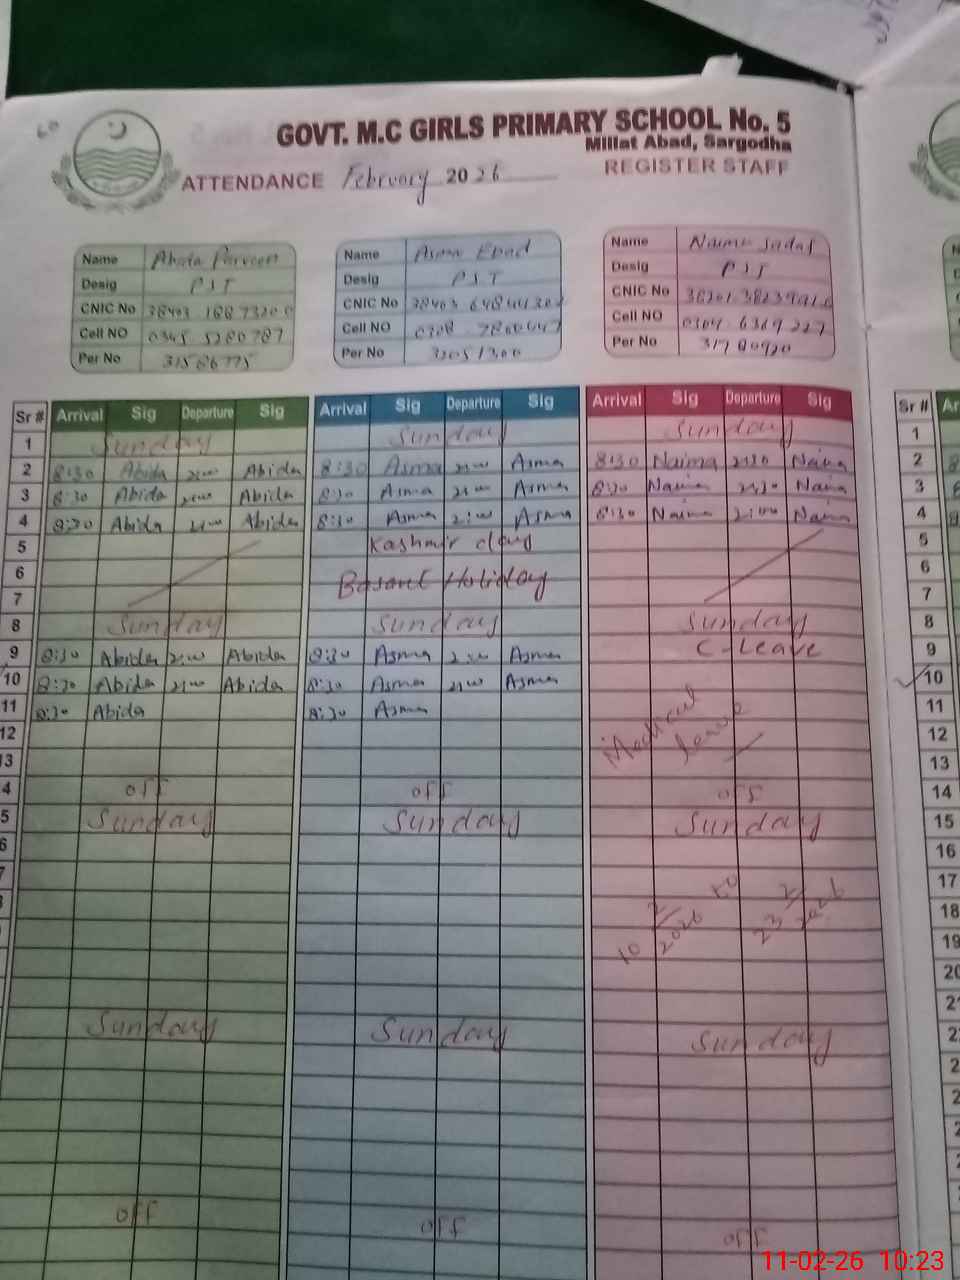 GOVT. M.C GIRLS PRIMARY SCHOOL No. 5
Millat Abad, Sargodha
ATTENDANCE February 2026 REGISTER STAFF
Name Abida Parveen
Desig PST
CNIC No
Cell NO 0345 5280787
Per No 31586775
Name Asma
Desig PST
CNIC No
Cell NO
Per No
Name Naima
Desig PST
CNIC No
Cell NO
Per No 31780920
Sr # Arrival Sig Departure Sig Arrival Sig Departure Sig Arrival Sig Departure Sig Sr # Ar
1 Sunday Sunday Sunday 1
2 8:30 Abida 2:00 Abida 8:30 Asma 2:00 Asma 8:30 Naima 2:30 Naima 2
3 8:30 Abida 2:00 Abida 8:30 Asma 2:00 Asma 8:30 Naima 2:30 Naima 3
4 8:30 Abida 2:00 Abida 8:30 Asma 2:00 Asma 8:30 Naima 2:00 Naima 4
5 Kashmir day 5
6 Basant Holiday 6
7 7
8 Sunday Sunday Sunday 8
9 8:30 Abida 2:00 Abida 8:30 Asma 2:00 Asma C-Leave 9
10 8:30 Abida 2:00 Abida 8:30 Asma 2:00 Asma 10
11 8:30 Abida 8:30 Asma 11
12 Medical leave 12
13 13
4 off off off 14
5 Sunday Sunday Sunday 15
6 16
7 17
10 2/2026 to 23 2/2026 18
19
20
Sunday Sunday Sunday
off off off
11-02-26 10:23